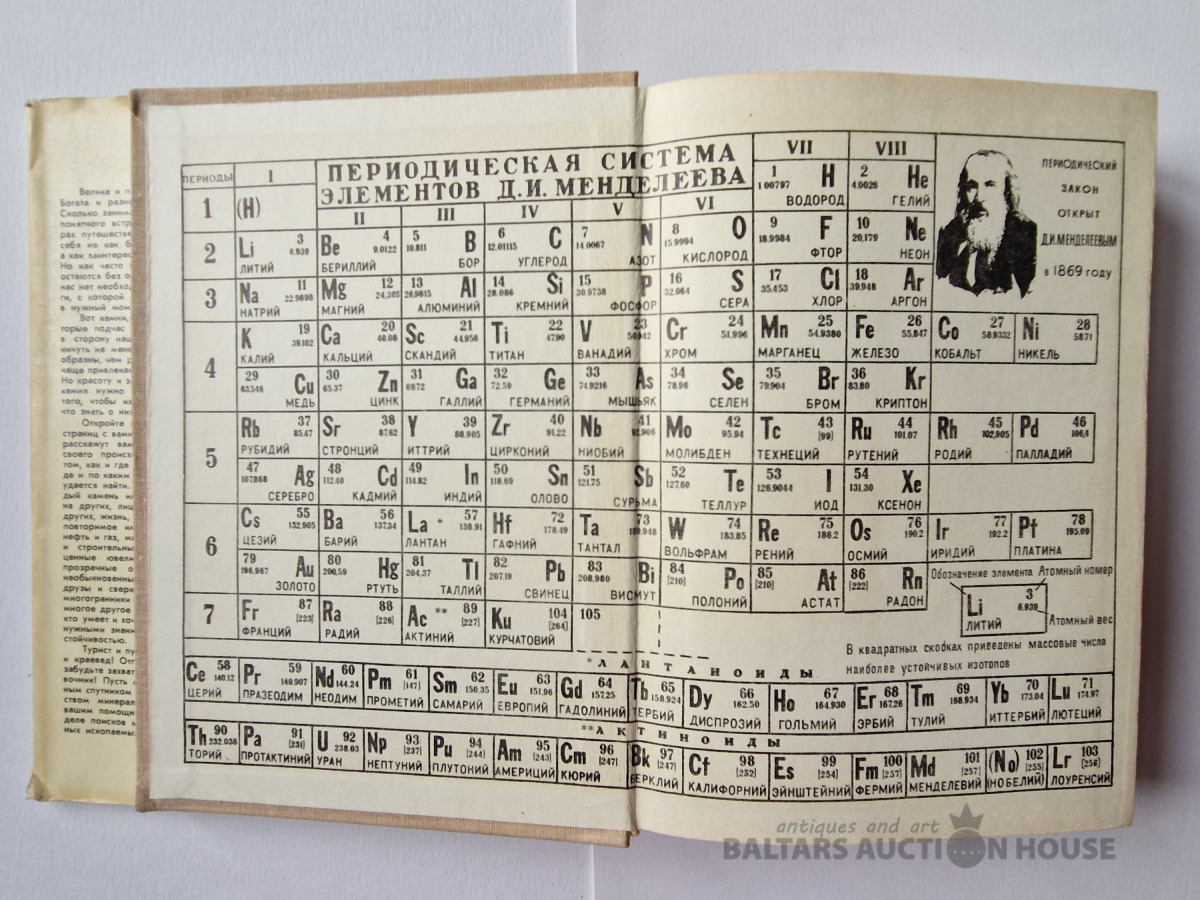 Велика и п
Богата и разн
Сколько заним
понятного встр
рах путешеств
себя не как б
а как заинтере
Но как часто
остаются без о
нас нет необхо
ги, с которой
в нужный мом
Вот камни,
торые подчас
в сторону наш
ничуть не мене
образны, чем р
чаще привлека
Но красоту и з
камня нужно
того, чтобы их
что знать о ни
Откройте
страниц с вами
расскажут вам
своего проис
том, как и где
де и по каким
удается найти.
дый камень на
на других, ли
других, жизнь,
повторимое им
нефть и газ, м
и строительны
ценные ювели
прозрачные о
необыкновенны
друзы и сверк
многогранники
многое другое
кто умеет и хоч
нужными знани
стойчивостью.
Турист и пу
и краевед! От
забудьте захват
вочник! Пусть
ным спутником
ством минерал
вашим помощн
деле поисков м
ных ископаемы
ПЕРИОДИЧЕСКАЯ СИСТЕМА
ЭЛЕМЕНТОВ Д.И. МЕНДЕЛЕЕВА
ПЕРИОДЫ I II III IV V VI VII VIII
1 (H) 1 1.00797 H ВОДОРОД 2 4.0026 He ГЕЛИЙ
2 Li 3 6.939 ЛИТИЙ Be 4 9.0122 БЕРИЛЛИЙ 5 10.811 B БОР 6 12.01115 C УГЛЕРОД 7 14.0067 N АЗОТ 8 15.9994 O КИСЛОРОД 9 18.9984 F ФТОР 10 20,179 Ne НЕОН
3 Na 11 22.9898 НАТРИЙ Mg 12 24,305 МАГНИЙ 13 26.9815 Al АЛЮМИНИЙ 14 28.086 Si КРЕМНИЙ 15 30.9738 P ФОСФОР 16 32.064 S СЕРА 17 35.453 Cl ХЛОР 18 39.948 Ar АРГОН
4 K 19 39.102 КАЛИЙ Ca 20 40.08 КАЛЬЦИЙ Sc 21 44.956 СКАНДИЙ Ti 22 47.90 ТИТАН V 23 50.942 ВАНАДИЙ Cr 24 51.996 ХРОМ Mn 25 54.9380 МАРГАНЕЦ Fe 26 55.847 ЖЕЛЕЗО Co 27 58.9332 КОБАЛЬТ Ni 28 58.71 НИКЕЛЬ
29 63.546 Cu МЕДЬ 30 65.37 Zn ЦИНК 31 69.72 Ga ГАЛЛИЙ 32 72.59 Ge ГЕРМАНИЙ 33 74.9216 As МЫШЬЯК 34 78.96 Se СЕЛЕН 35 79.904 Br БРОМ 36 83.80 Kr КРИПТОН
5 Rb 37 85.47 РУБИДИЙ Sr 38 87.62 СТРОНЦИЙ Y 39 88.905 ИТТРИЙ Zr 40 91.22 ЦИРКОНИЙ Nb 41 92.906 НИОБИЙ Mo 42 95.94 МОЛИБДЕН Tc 43 [99] ТЕХНЕЦИЙ Ru 44 101.07 РУТЕНИЙ Rh 45 102,905 РОДИЙ Pd 46 106,4 ПАЛЛАДИЙ
47 107.868 Ag СЕРЕБРО 48 112.40 Cd КАДМИЙ 49 114.82 In ИНДИЙ 50 118.69 Sn ОЛОВО 51 121.75 Sb СУРЬМА 52 127.60 Te ТЕЛЛУР 53 126.9044 I ИОД 54 131.30 Xe КСЕНОН
6 Cs 55 132.905 ЦЕЗИЙ Ba 56 137.34 БАРИЙ La * 57 138.91 ЛАНТАН Hf 72 178.49 ГАФНИЙ Ta 73 180.948 ТАНТАЛ W 74 183.85 ВОЛЬФРАМ Re 75 186.2 РЕНИЙ Os 76 190.2 ОСМИЙ Ir 77 192.2 ИРИДИЙ Pt 78 195.09 ПЛАТИНА
79 196,987 Au ЗОЛОТО 80 200,59 Hg РТУТЬ 81 204,37 Tl ТАЛЛИЙ 82 207.19 Pb СВИНЕЦ 83 208.980 Bi ВИСМУТ 84 [210] Po ПОЛОНИЙ 85 [210] At АСТАТ 86 [222] Rn РАДОН
7 Fr 87 [223] ФРАНЦИЙ Ra 88 [226] РАДИЙ Ac ** 89 [227] АКТИНИЙ Ku 104 [264] КУРЧАТОВИЙ 105
ПЕРИОДИЧЕСКИЙ
ЗАКОН
ОТКРЫТ
Д.И.МЕНДЕЛЕЕВЫМ
в 1869 году
Обозначение элемента Атомный номер
Li 3
6.939
ЛИТИЙ
Атомный вес
В квадратных скобках приведены массовые числа
наиболее устойчивых изотопов
*ЛАНТАНОИДЫ
Ce 58 140.12 ЦЕРИЙ Pr 59 140.907 ПРАЗЕОДИМ Nd 60 144.24 НЕОДИМ Pm 61 [147] ПРОМЕТИЙ Sm 62 150.35 САМАРИЙ Eu 63 151.96 ЕВРОПИЙ Gd 64 157.25 ГАДОЛИНИЙ Tb 65 158.924 ТЕРБИЙ Dy 66 162.50 ДИСПРОЗИЙ Ho 67 164.930 ГОЛЬМИЙ Er 68 167.26 ЭРБИЙ Tm 69 168.934 ТУЛИЙ Yb 70 173.04 ИТТЕРБИЙ Lu 71 174.97 ЛЮТЕЦИЙ
**АКТИНОИДЫ
Th 90 232.038 ТОРИЙ Pa 91 [231] ПРОТАКТИНИЙ U 92 238.03 УРАН Np 93 [237] НЕПТУНИЙ Pu 94 [244] ПЛУТОНИЙ Am 95 [243] АМЕРИЦИЙ Cm 96 [247] КЮРИЙ Bk 97 [247] БЕРКЛИЙ Cf 98 [252] КАЛИФОРНИЙ Es 99 [254] ЭЙНШТЕЙНИЙ Fm 100 [257] ФЕРМИЙ Md 101 [257] МЕНДЕЛЕВИЙ (No) 102 [255] (НОБЕЛИЙ) Lr 103 [256] ЛОУРЕНСИЙ
antiques and art
BALTARS AUCTION HOUSE